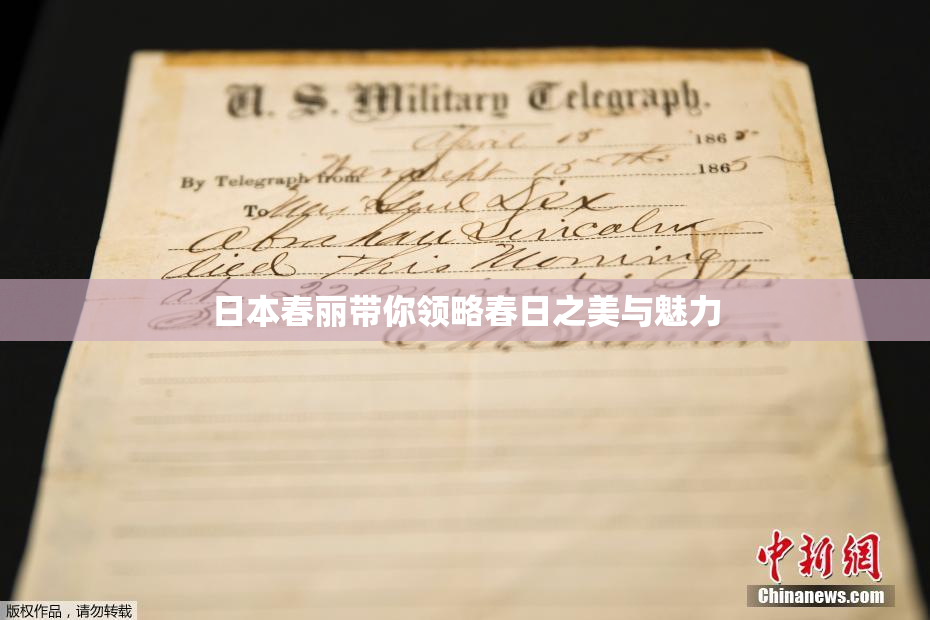 U. S. Military Telegraph.
April 15 1865
By Telegraph from War Dept 15th 1865
To Maj Genl Dix
Abraham Lincoln
died This Morning
at 22 minutes after
日本春丽带你领略春日之美与魅力
E. M. Stanton
中新网
Chinanews.com
版权作品，请勿转载